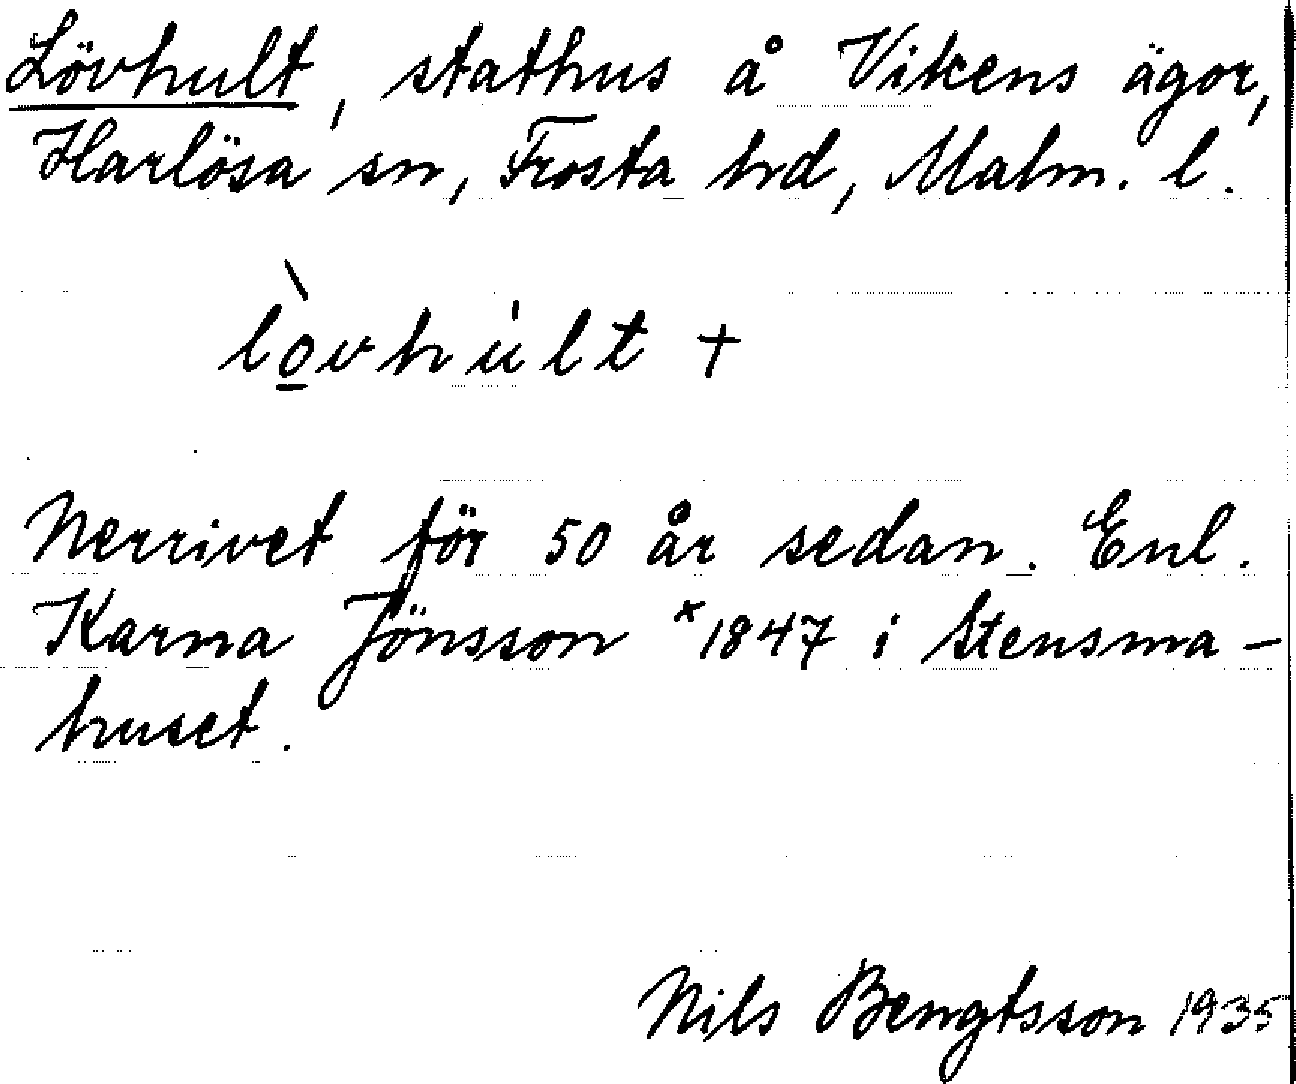 Lövhult, stathus å Vikens ägor,
Harlösa sn, Frosta hd, Malm. l.
lò̲vhu̍lt +
Nerrivet för 50 år sedan. Enl.
Karna Jönsson *1847 i Stensma-
huset.
Nils Bengtsson 1935